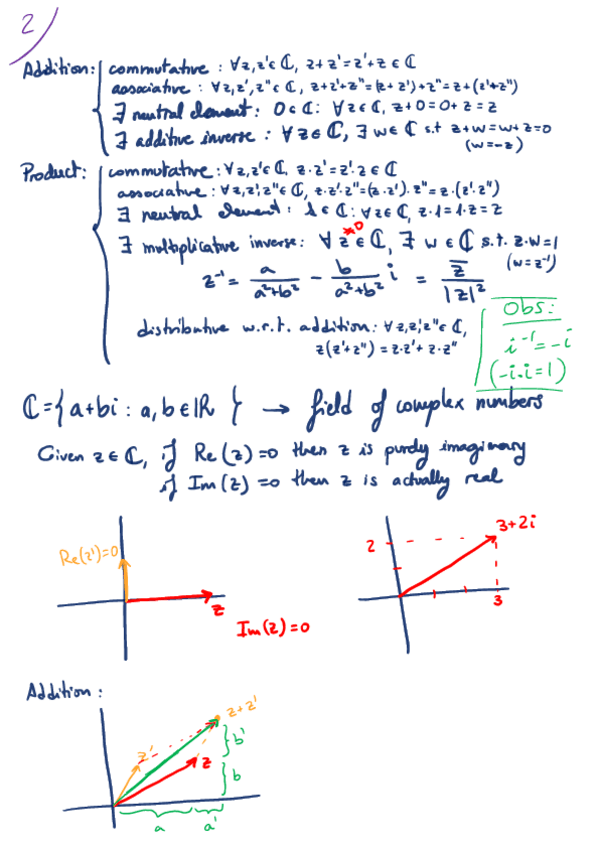 2
Addition: commutative : ∀z,z'∈ℂ, z+z'=z'+z∈ℂ
associative : ∀z,z',z''∈ℂ, z+z'+z''=(z+z')+z''=z+(z'+z'')
∃ neutral element: 0∈ℂ: ∀z∈ℂ, z+0=0+z=z
∃ additive inverse : ∀z∈ℂ, ∃w∈ℂ s.t z+w=w+z=0
(w=-z)
Product: commutative : ∀z,z'∈ℂ, z·z'=z'·z∈ℂ
associative : ∀z,z',z''∈ℂ, z·z'·z''=(z·z')·z''=z·(z'·z'')
∃ neutral element : 1∈ℂ: ∀z∈ℂ, z·1=1·z=z
∃ multiplicative inverse: ∀z≠0∈ℂ, ∃ w∈ℂ s.t. z·w=1
(w=z⁻¹)
z⁻¹ = a/(a²+b²) - b/(a²+b²) i = z̅/|z|²
distributive w.r.t. addition: ∀z,z',z''∈ℂ,
z(z'+z'')=z·z'+z·z''
Obs:
i⁻¹=-i
(-i·i=1)
ℂ={a+bi : a,b∈ℝ} → field of complex numbers
Given z∈ℂ, if Re(z)=0 then z is purely imaginary
if Im(z)=0 then z is actually real
Re(z')=0
z
Im(z)=0
3+2i
2
3
Addition :
z+z'
z'
b'
z
b
a a'